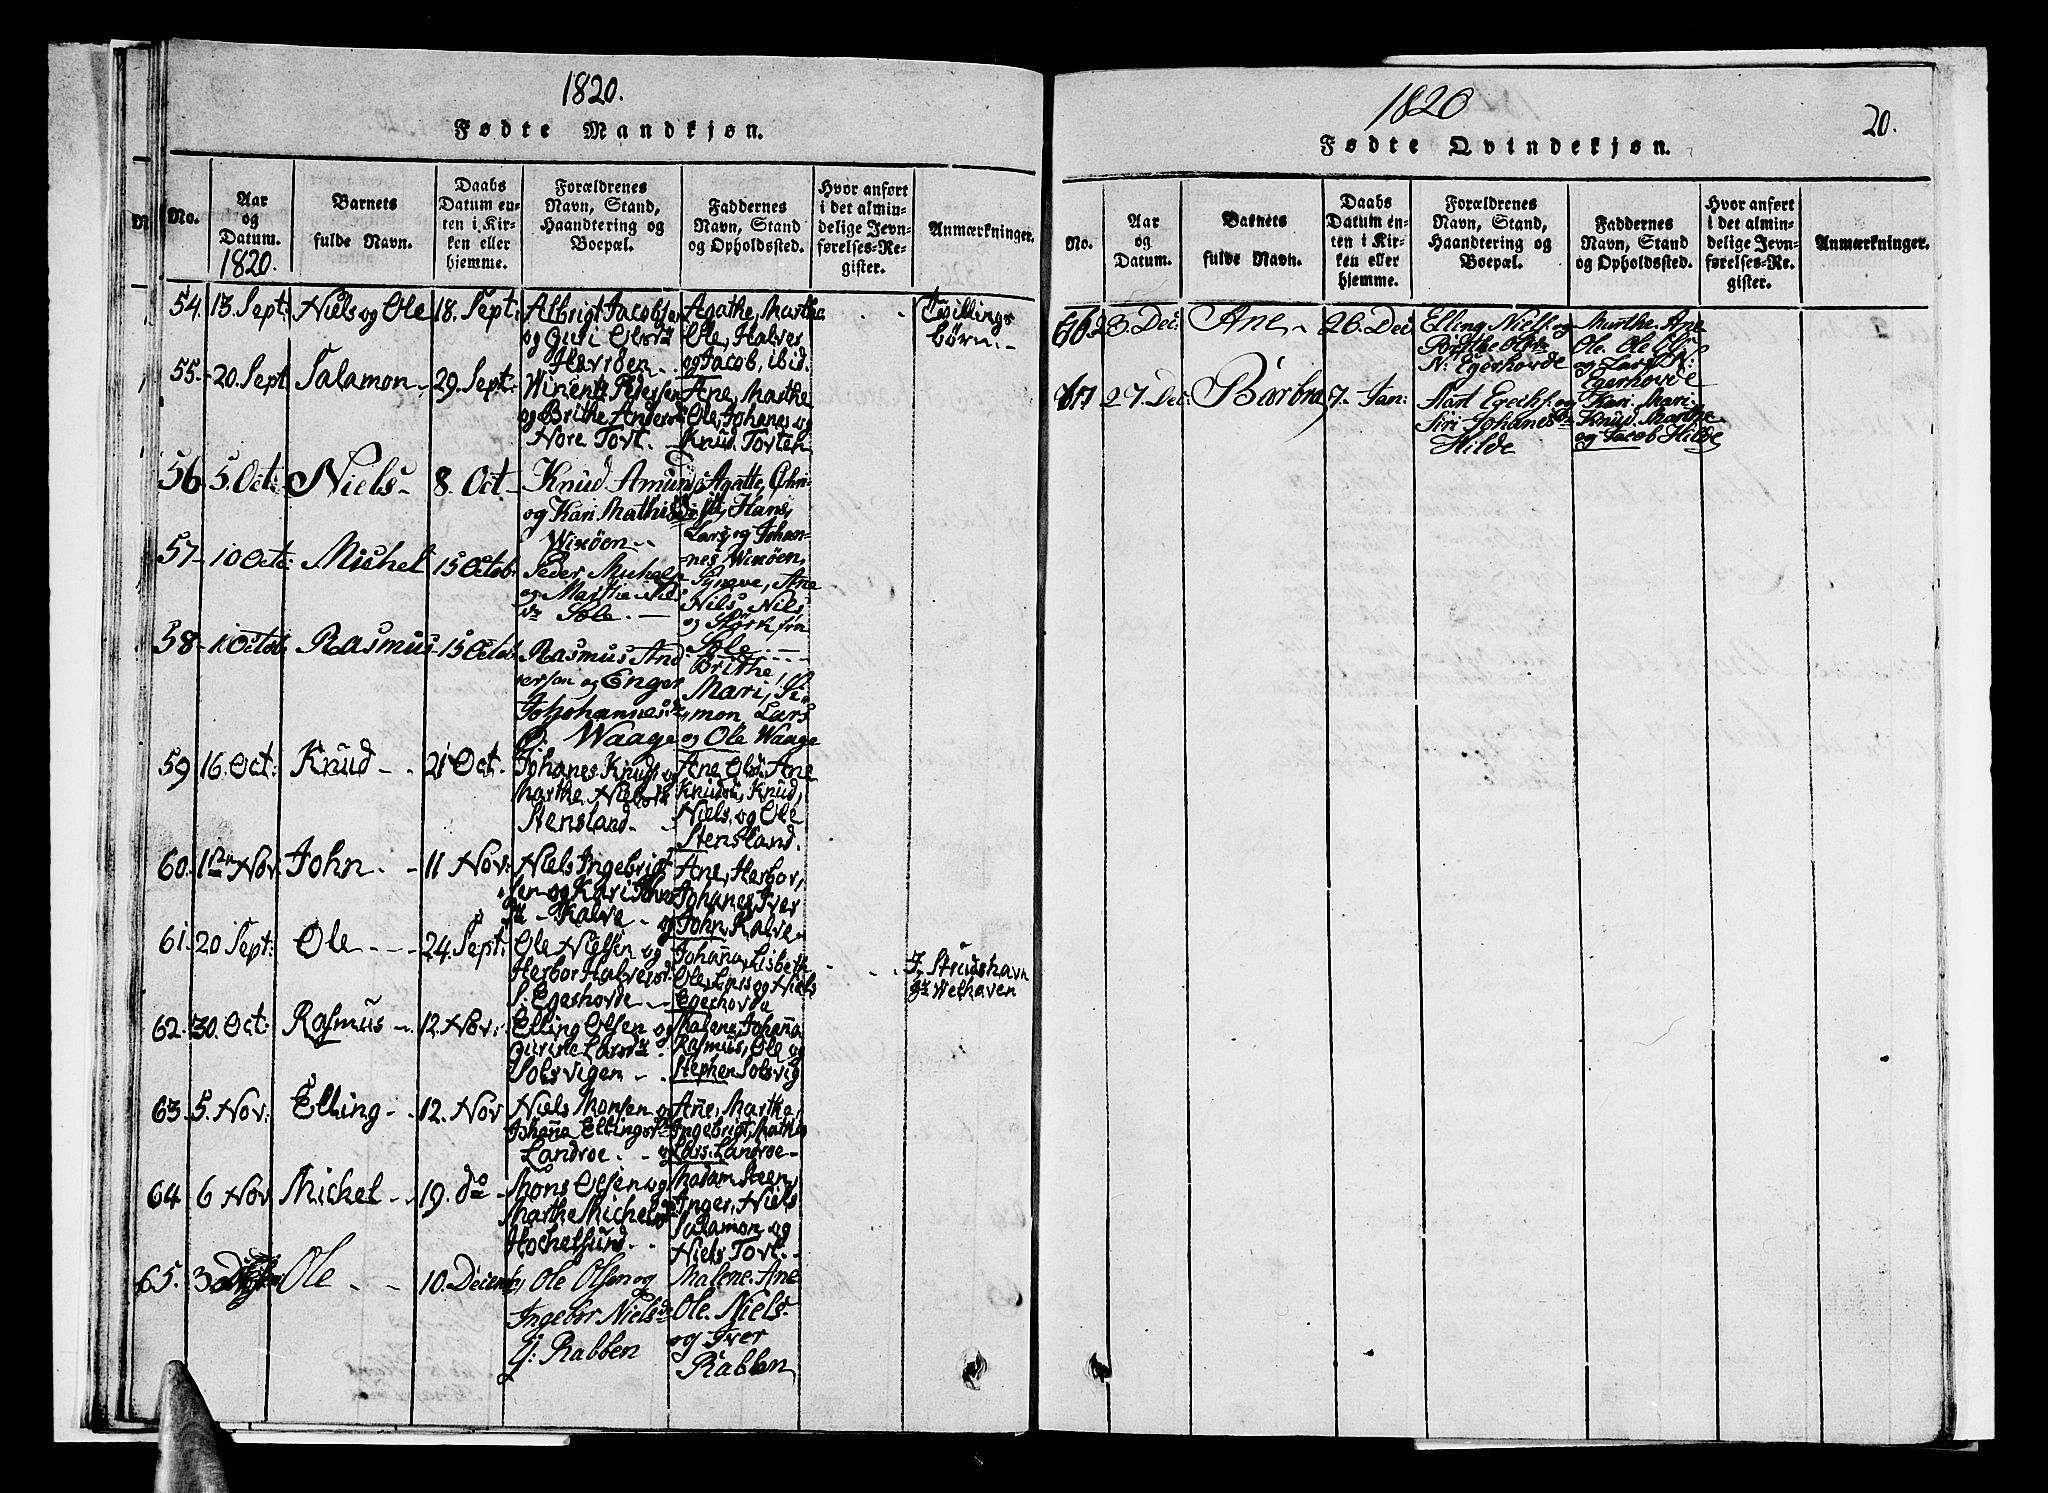 1820.
Fødte Mandkjøn.
No.
Aar og Datum. 1820.
Barnets fulde Navn.
Daabs Datum enten i Kirken eller hjemme.
Forældrenes Navn, Stand, Haandtering og Boepæl.
Faddernes Navn, Stand og Opholdssted.
Hvor anført i det almindelige Jevnførelses-Register.
Anmærkninger.
54. 13 Sept: Niels og Ole 18. Sept: Albrigt Jacobsen Agathe, Marthe Tvillings
og Guri Olsdr Ole, Halver børn. -
og Jacob, ibid.
55. 20. Sept Salamon 29. Sept: Pedersen Ane, Marthe
og Brithe Anders Ole, Johanes og
Nore Tovt. Knud. Tovten
56. 5. Oct: Niels 8. Oct Knud Amund Agatte,
og Kari Mathi Hans,
Wixøen Lars og Johan-
nes Wixøen
57 10 Oct: Michel 15 Octob: Peder Michels Synave, Ane
og Marthe Nils, Nils
Sole. og Størk fra
Sole
58 Octob: Rasmus 15 Octob: Rasmus And Brithe,
ersen og Enger Mari, Si-
Johannesdr mon Lars
Waage og Ole Waage
59 16. Oct: Knud 21 Oct. Johanes Knuds og Ane Olsd. Ane
Marthe Nielsdr Knudsd, Knud,
Stensland. Niels og Ole
Stensland.
60. 1 Nov. John 11 Nov: Niels Ingebrigt Ane, Herbor,
sen og Kari Johanes, Iver
Kalve og John, Kalve
61. 20 Sept: Ole 24. Sept: Ole Nielsen og Johana, Lisbeth I. Strudshavn
Herbor Halvers Ole, Lars og Niels Welhaven
Egeshovde Egeshovde
62. 30. Oct: Rasmus 12. Nov: Elling Olsen og Malene, Johana
Gurine Larsdr Rasmus, Ole og
Solsvigen Stephen Solsvig
63. 5. Nov: Elling 12. Nov Niels Monsen og Ane, Marthe,
Johana Ellingsd Ingebrigt, Mathis
Landroe og Lars. Landroe
64 6 Nov Mickel 19. do Mons Olsen og Madam Steen,
Marthe Michelsd Inger, Niels
Salamon, og
Niels Tovt.
65. 3 Ole 10. Decemb, Ole Olsen og Malene. Ane
Ingebor Nielsdr Ole. Niels
Rabben og Iver
Rabben
1820
20.
Fødte Qvindekjøn.
No.
Aar og Datum.
Barnets fulde Navn.
Daabs Datum enten i Kirken eller hjemme.
Forældrenes Navn, Stand, Haandtering og Boepæl.
Faddernes Navn, Stand og Opholdssted.
Hvor anført i det almindelige Jevnførelses-Register.
Anmærkninger.
66 23. Dec: Ane 26. Dec Elling Niels. og Marthe. Ane
Brithe Olsdr Ole. Ole
N: Egerhovde og Lars N:
Egerhovde
67 27. Dec: Barbra 7. Jan: Erichs. og Kari. Mari.
Siri Johanes Knud. Marthe
Hilde og Jacob Hilde